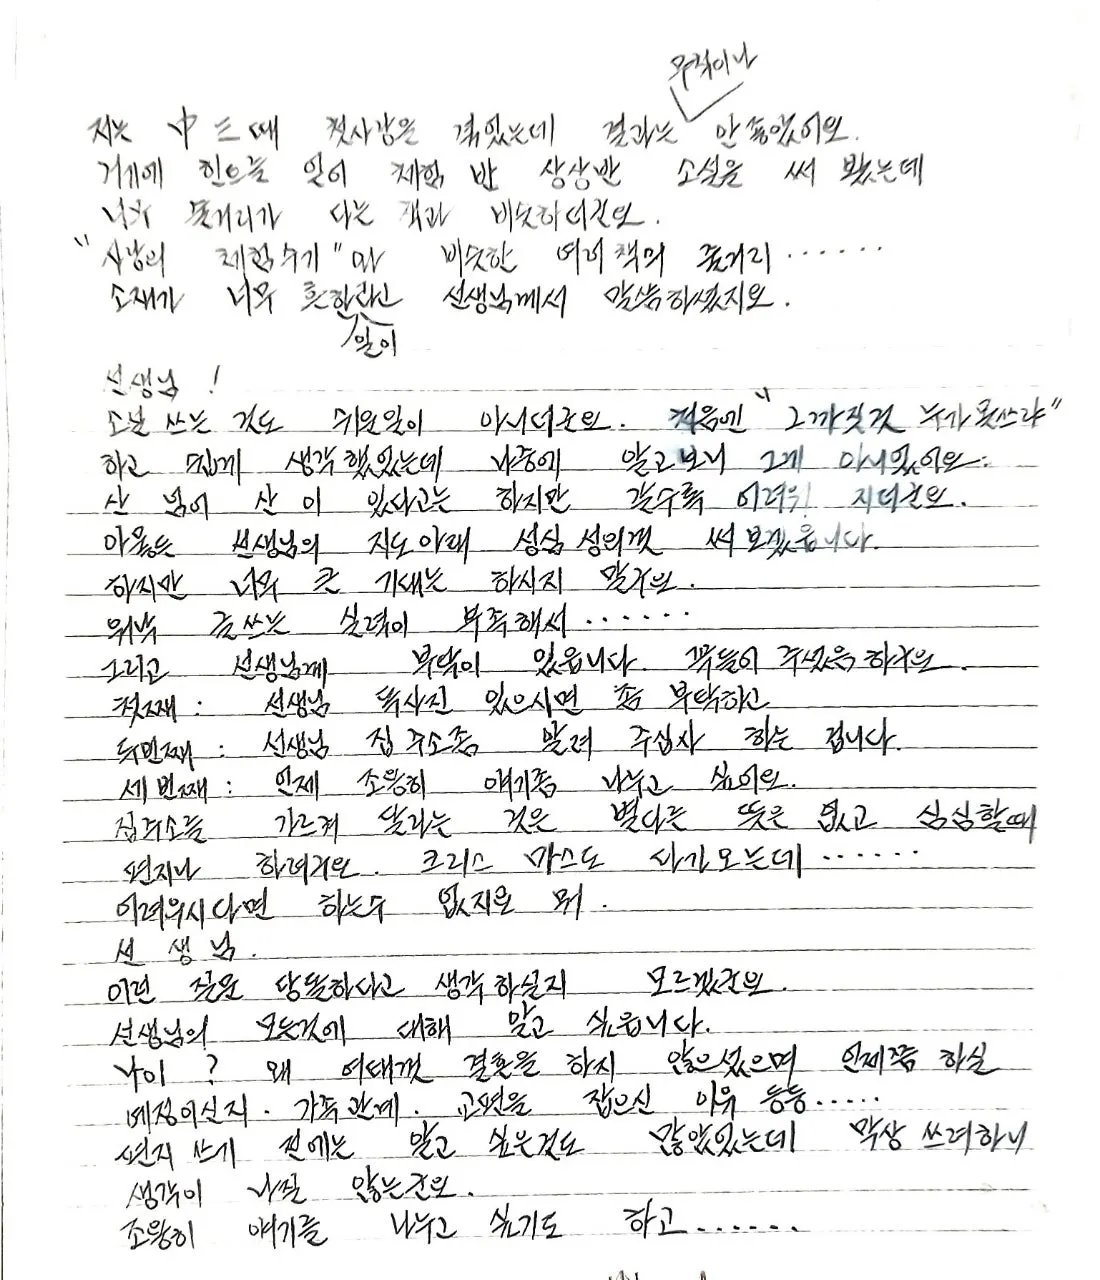 무척이나
저는 中三때 첫사랑을 겪었는데 결과는 안좋았어요.
거기에 힌트를 얻어 체험 반 상상반 소설을 써 봤는데
너무 줄거리가 다른 책과 비슷하더군요.
"사랑의 체험수기"와 비슷한 여러책의 줄거리......
소재가 너무 흔하라고 선생님께서 말씀하셨지요.
일이
선생님!
소설 쓰는 것도 쉬운일이 아니더군요. 처음엔 "그까짓것 누가못쓰랴"
하고 쉽게 생각했었는데 나중에 알고보니 그게 아니었어요.
산 넘어 산 이 있다고는 하지만 갈수록 어려워 지더군요.
아뭏든 선생님의 지도아래 성심 성의껏 써보겠읍니다.
하지만 너무 큰 기대는 하시지 말구요.
워낙 글쓰는 실력이 부족해서......
그리고 선생님께 부탁이 있읍니다. 꼭들어주셨음하구요.
첫째: 선생님 독사진 있으시면 좀 부탁하고
두번째: 선생님 집주소좀 알려 주십사 하는 겁니다.
세번째: 언제 조용히 얘기좀 나누고 싶어요.
집주소를 가르켜 달라는 것은 별다른 뜻은 없고 심심할때
편지나 하려구요. 크리스마스도 다가오는데......
어려우시다면 하는수 없지요 뭐.
선생님.
이런 질문 당돌하다고 생각하실지 모르겠군요.
선생님의 모든것에 대해 알고 싶읍니다.
나이? 왜 여태껏 결혼을 하지 않으셨으며 언제쯤 하실
예정이신지. 가족관계. 교편을 잡으신 이유 등등.....
편지쓰기 전에는 알고 싶은것도 많았었는데 막상 쓰려하니
생각이 나질 않는군요.
조용히 얘기를 나누고 싶기도 하고......